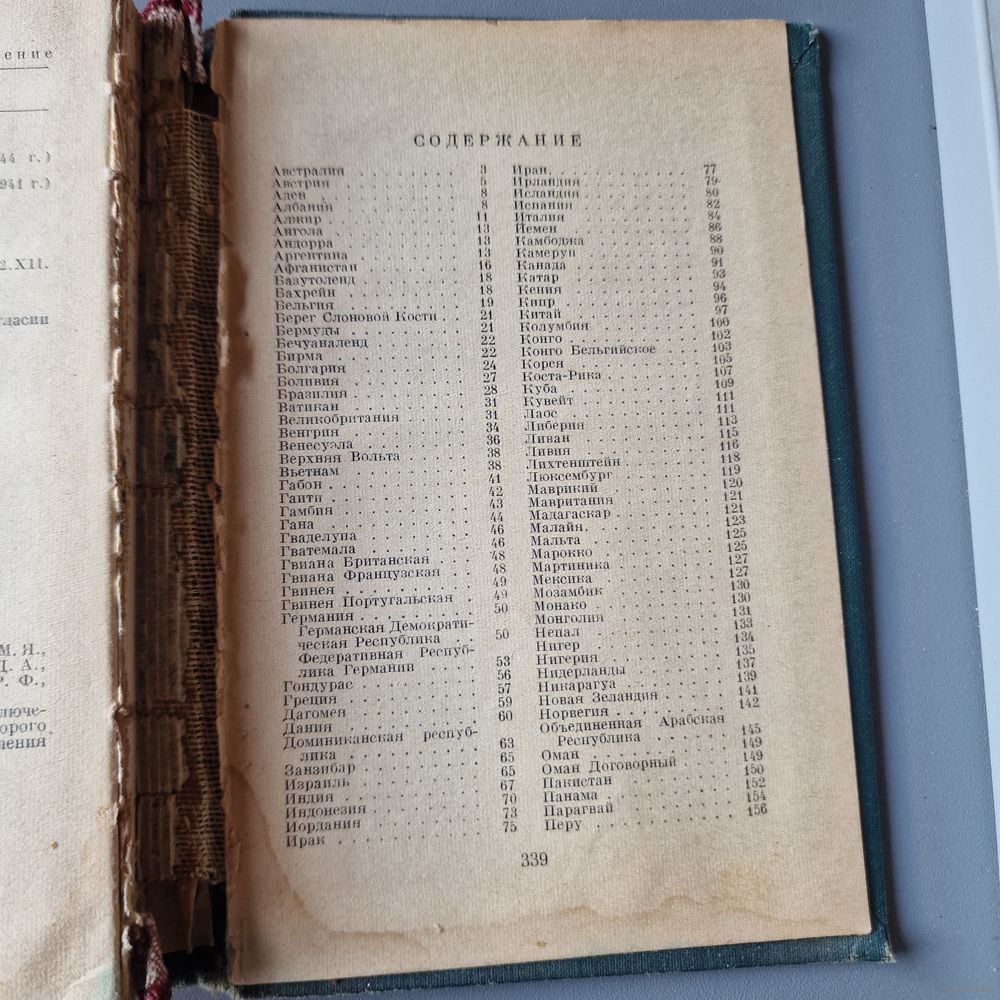 ение
44 г.)
941 г.)
2.XII.
гласии
М. Я.,
Д. А.,
Р. Ф.,
ключе-
орого
ления
СОДЕРЖАНИЕ
Австралия 3
Австрия 5
Аден 8
Албания 8
Алжир 11
Ангола 13
Андорра 13
Аргентина 13
Афганистан 16
Базутоленд 18
Бахрейн 18
Бельгия 19
Берег Слоновой Кости 21
Бермуды 21
Бечуаналенд 22
Бирма 22
Болгария 24
Боливия 27
Бразилия 28
Ватикан 31
Великобритания 31
Венгрия 34
Венесуэла 36
Верхняя Вольта 38
Вьетнам 38
Габон 41
Гаити 42
Гамбия 43
Гана 44
Гваделупа 46
Гватемала 46
Гвиана Британская 48
Гвиана Французская 48
Гвинея 49
Гвинея Португальская 49
Германия 50
Германская Демократи-
ческая Республика 50
Федеративная Респуб-
лика Германии 53
Гондурас 56
Греция 57
Дагомея 59
Дания 60
Доминиканская респуб-
лика 63
Занзибар 65
Израиль 65
Индия 67
Индонезия 70
Иордания 73
Ирак 75
Иран 77
Ирландия 79
Исландия 80
Испания 82
Италия 84
Йемен 86
Камбоджа 88
Камерун 90
Канада 91
Катар 93
Кения 94
Кипр 96
Китай 97
Колумбия 100
Конго 102
Конго Бельгийское 103
Корея 105
Коста-Рика 107
Куба 109
Кувейт 111
Лаос 111
Либерия 113
Ливан 115
Ливия 116
Лихтенштейн 118
Люксембург 119
Маврикий 120
Мавритания 121
Мадагаскар 121
Малайя 123
Мальта 125
Марокко 125
Мартиника 127
Мексика 127
Мозамбик 130
Монако 130
Монголия 131
Непал 133
Нигер 134
Нигерия 135
Нидерланды 137
Никарагуа 139
Новая Зеландия 141
Норвегия 142
Объединенная Арабская
Республика 145
Оман 149
Оман Договорный 149
Пакистан 150
Панама 152
Парагвай 154
Перу 156
339